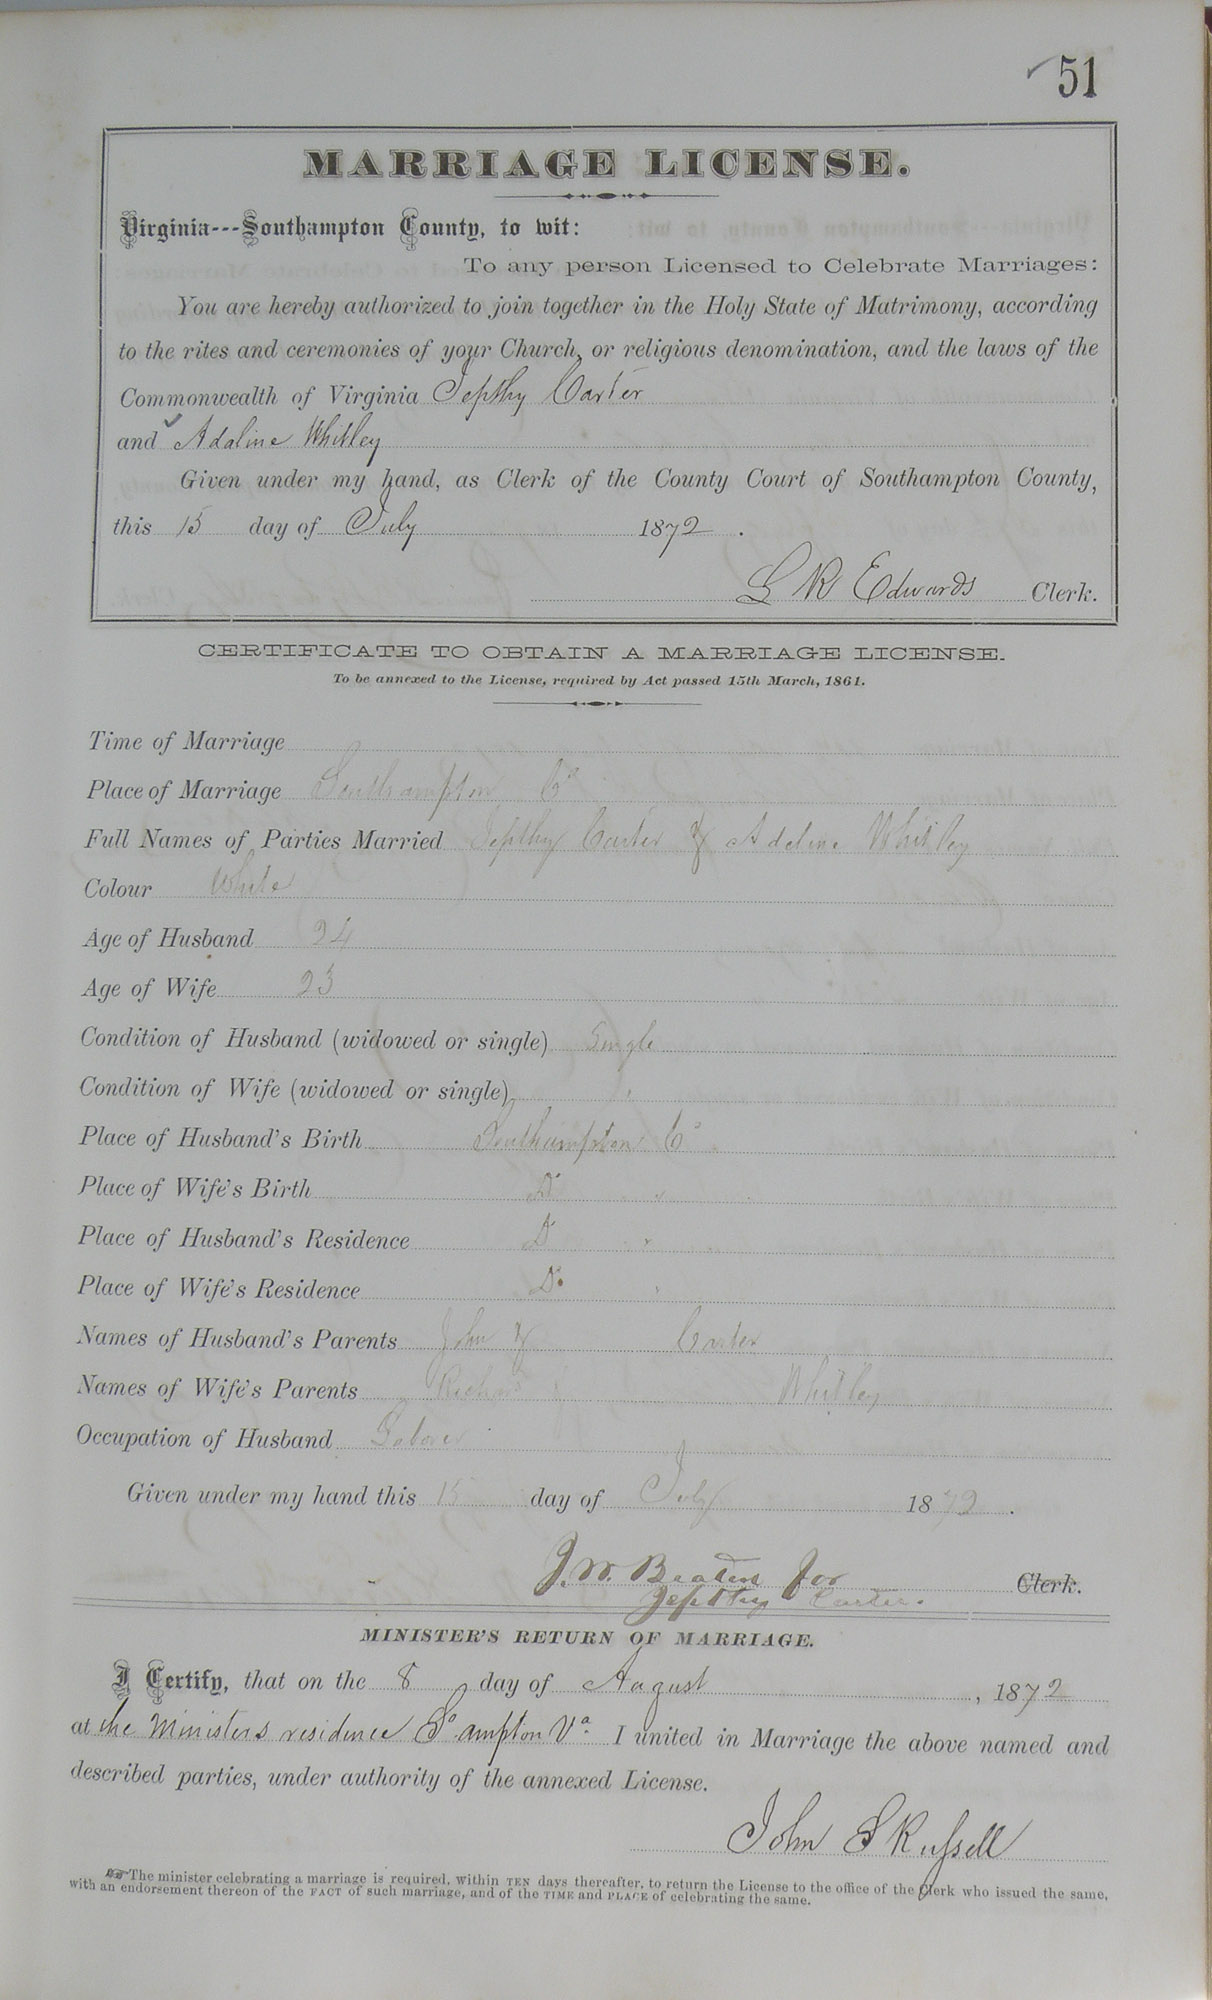 51
MARRIAGE LICENSE.
Virginia---Southampton County, to wit:
To any person Licensed to Celebrate Marriages:
You are hereby authorized to join together in the Holy State of Matrimony, according
to the rites and ceremonies of your Church, or religious denomination, and the laws of the
Commonwealth of Virginia Jepthy Carter
and Adaline Whitley
Given under my hand, as Clerk of the County Court of Southampton County,
this 15 day of July 1872.
L R Edwards Clerk.
CERTIFICATE TO OBTAIN A MARRIAGE LICENSE.
To be annexed to the License, required by Act passed 15th March, 1861.
Time of Marriage
Place of Marriage Southampton Co
Full Names of Parties Married Jepthy Carter & Adeline Whitley
Colour White
Age of Husband 24
Age of Wife 23
Condition of Husband (widowed or single) Single
Condition of Wife (widowed or single) "
Place of Husband's Birth Southampton Co
Place of Wife's Birth Do
Place of Husband's Residence Do
Place of Wife's Residence Do
Names of Husband's Parents John & Carter
Names of Wife's Parents Richard & Whitley
Occupation of Husband Laborer
Given under my hand this 15 day of July 1872.
J. W. Beaten for Clerk.
Jepthy Carter.
MINISTER'S RETURN OF MARRIAGE.
I Certify, that on the 8 day of August, 1872
at the Ministers residence So ampton Va. I united in Marriage the above named and
described parties, under authority of the annexed License.
John S Russell
The minister celebrating a marriage is required, within TEN days thereafter, to return the License to the office of the Clerk who issued the same,
with an endorsement thereon of the FACT of such marriage, and of the TIME and PLACE of celebrating the same.